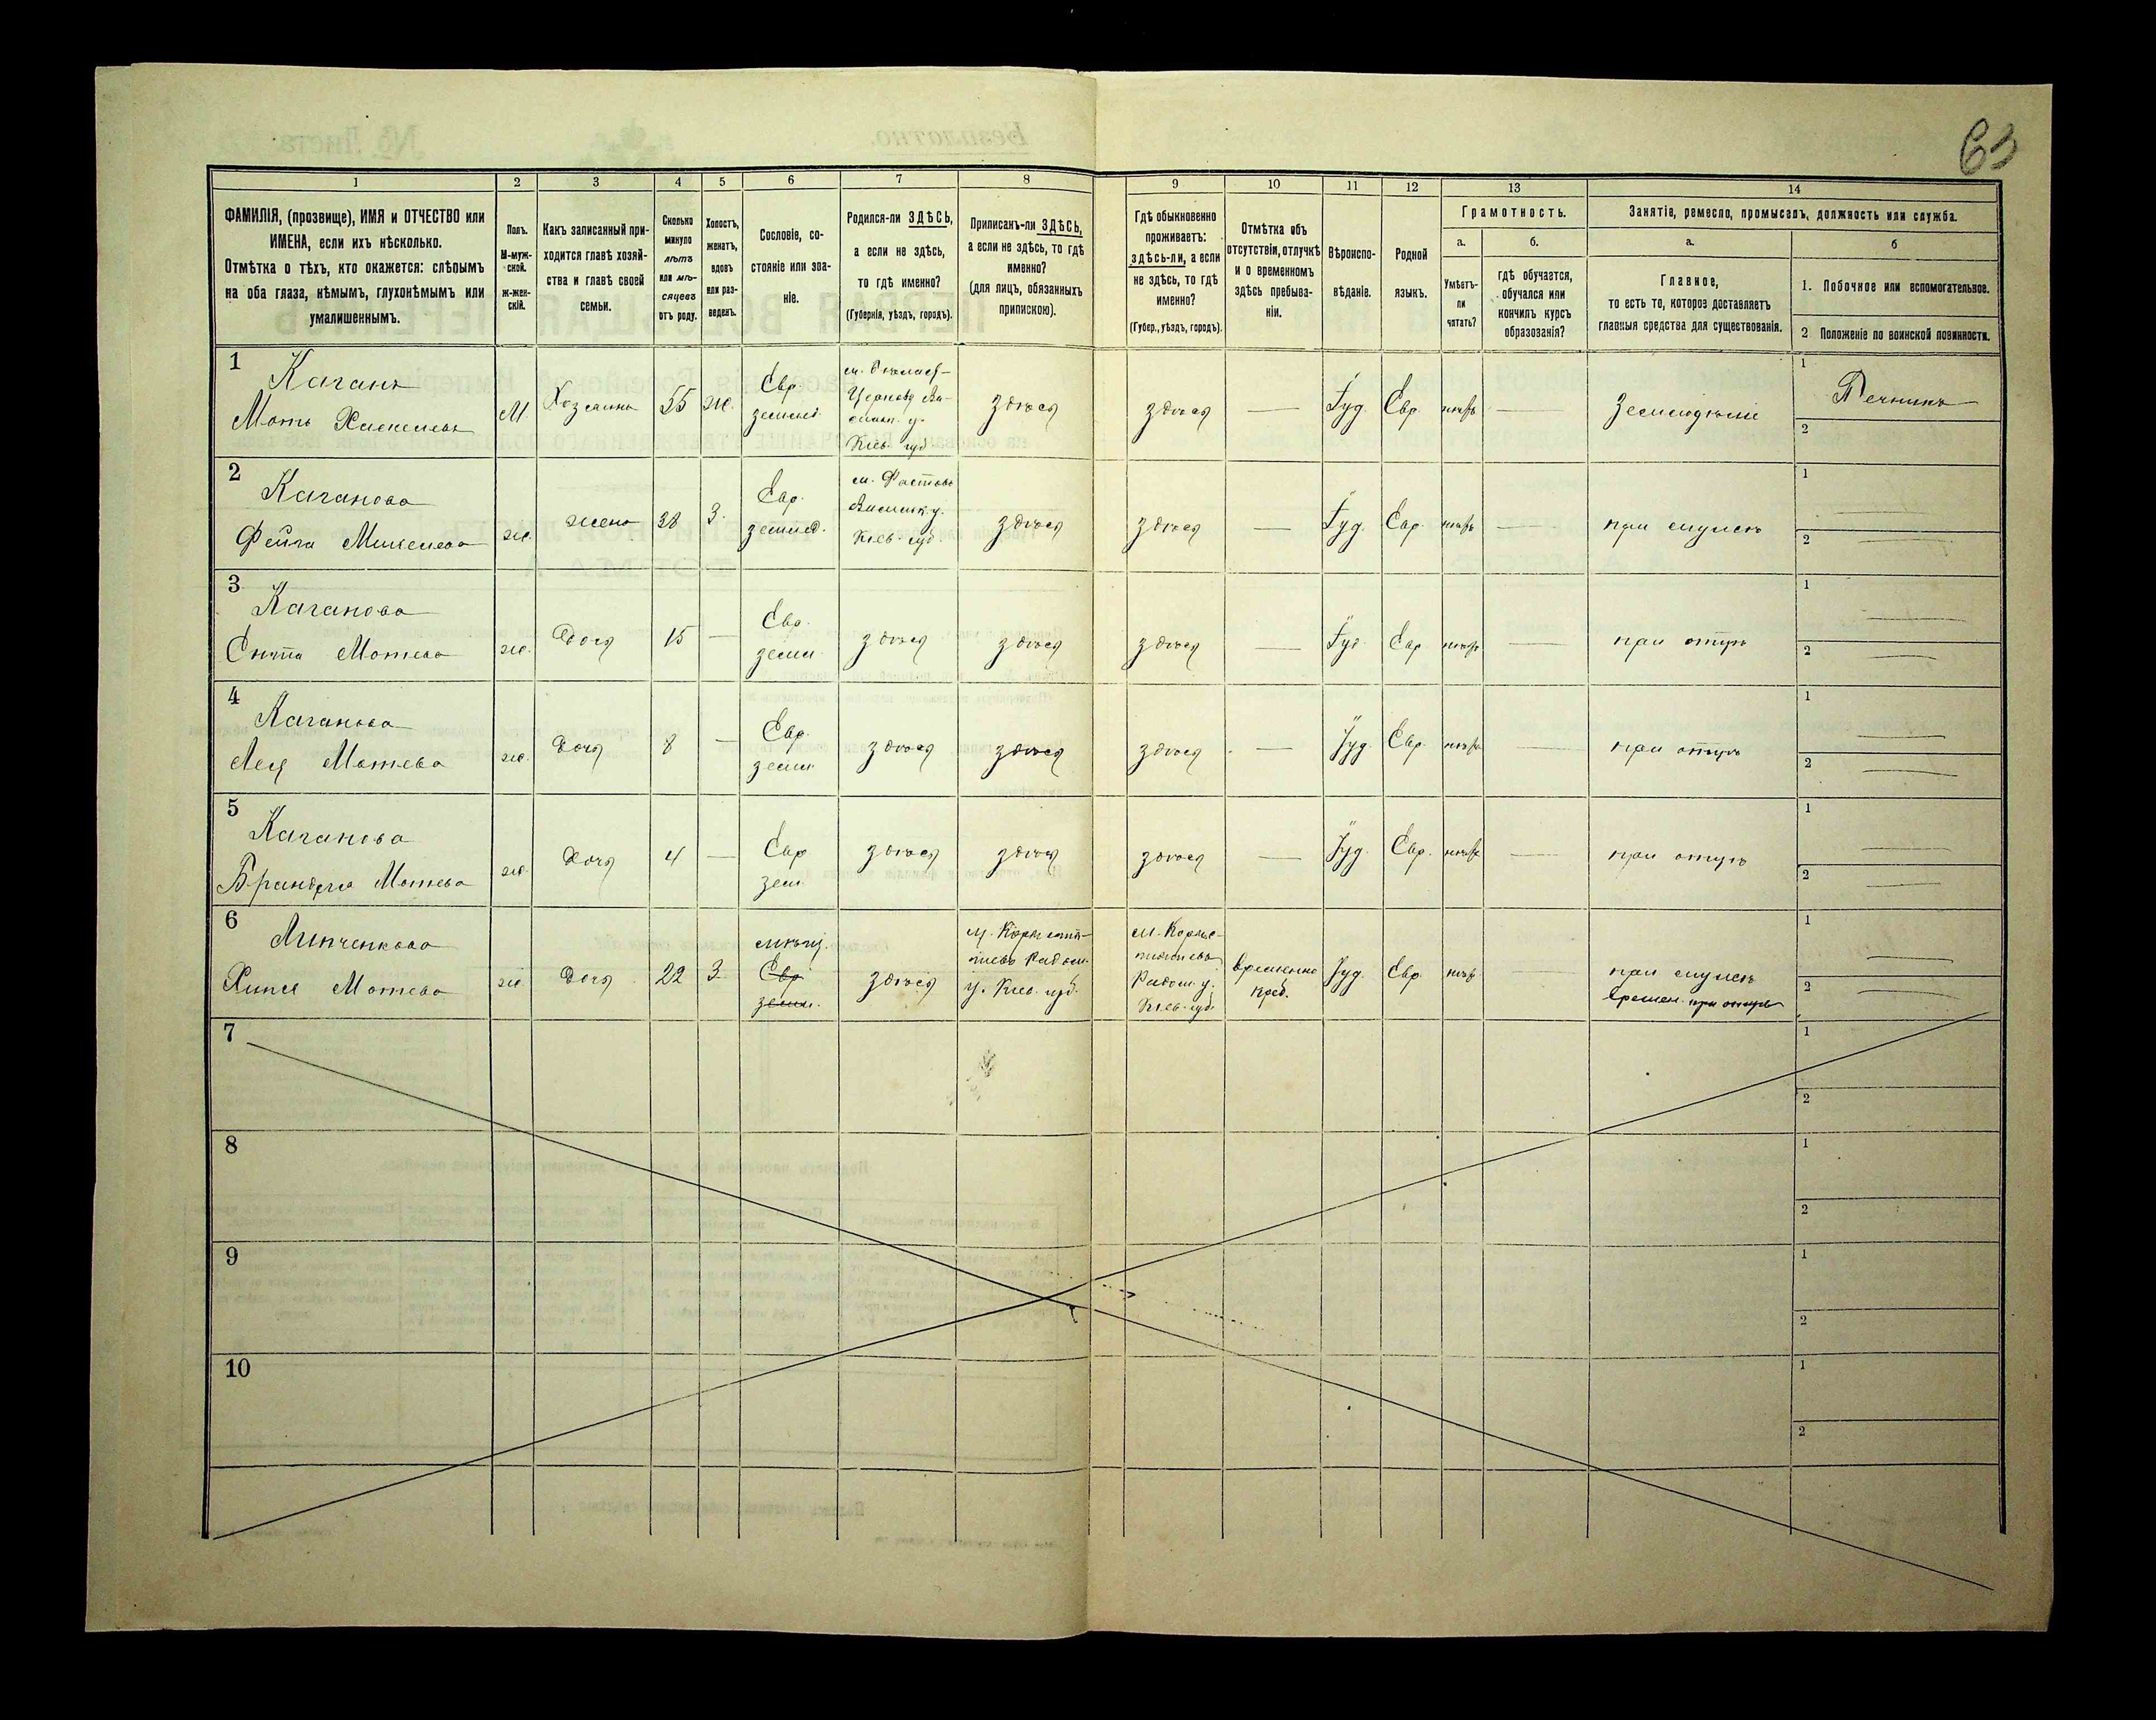 63
1 2 3 4 5 6 7 8 9 10 11 12 13 14
ФАМИЛІЯ, (прозвище), ИМЯ и ОТЧЕСТВО или
ИМЕНА, если ихъ нѣсколько.
Отмѣтка о тѣхъ, кто окажется: слѣпымъ
на оба глаза, нѣмымъ, глухонѣмымъ или
умалишеннымъ.
Полъ.
М-муж-
ской.
ж-жен-
скій.
Какъ записанный при-
ходится главѣ хозяй-
ства и главѣ своей
семьи.
Сколько
минуло
лѣтъ
или мѣ-
сяцевъ
отъ роду.
Холостъ,
женатъ,
вдовъ
или раз-
веденъ.
Сословіе, со-
стояніе или зва-
ніе.
Родился-ли ЗДѢСЬ,
а если не здѣсь,
то гдѣ именно?
(Губернія, уѣздъ, городъ).
Приписанъ-ли ЗДѢСЬ,
а если не здѣсь, то гдѣ
именно?
(для лицъ, обязанныхъ
припискою).
Гдѣ обыкновенно
проживаетъ:
здѣсь-ли, а если
не здѣсь, то гдѣ
именно?
(Губер., уѣздъ, городъ).
Отмѣтка объ
отсутствіи, отлучкѣ
и о временномъ
здѣсь пребыва-
ніи.
Вѣроиспо-
вѣданіе.
Родной
языкъ.
Грамотность.
а.
Умѣетъ-
ли
читать?
б.
гдѣ обучается,
обучался или
кончилъ курсъ
образованія?
Занятіе, ремесло, промыселъ, должность или служба.
а.
Главное,
то есть то, которое доставляетъ
главныя средства для существованія.
б
1. Побочное или вспомогательное.
2 Положеніе по воинской повинности.
1
Каганъ
Мотъ
М.
Хозяинъ
55
же.
Евр.
землед.
Кіев. губ.
здѣсь
здѣсь
—
Іуд.
Евр.
—
земледѣліе
1
Печникъ
2
2
Каганова
Фейга
же.
жена
38
З.
Евр.
землед.
м. Фастовъ
Васильк. у.
Кіев. губ.
здѣсь
здѣсь
—
Іуд.
Евр.
—
при мужѣ
1
2
3
Каганова
Мотева
же.
Дочь
15
—
Евр.
земл.
здѣсь
здѣсь
здѣсь
—
Іуд.
Евр
—
при отцѣ
1
2
4
Каганова
Лея Мотева
же.
дочь
8
—
Евр.
земл.
здѣсь
здѣсь
здѣсь
—
Іуд.
Евр.
—
при отцѣ
1
2
5
Каганова
Мотева
же.
Дочь
4
—
Евр
зем.
здѣсь
здѣсь
здѣсь
—
Іуд.
Евр.
—
при отцѣ
1
2
6
Мотева
же
Дочь
22
З.
мѣщ.
Евр
земл.
здѣсь
у. Кіев. губ.
Радом. у.
Кіев. губ.
временно
преб.
Іуд.
Евр
при мужѣ
времен. при отцѣ
1
2
7
1
2
8
1
2
9
1
2
10
1
2